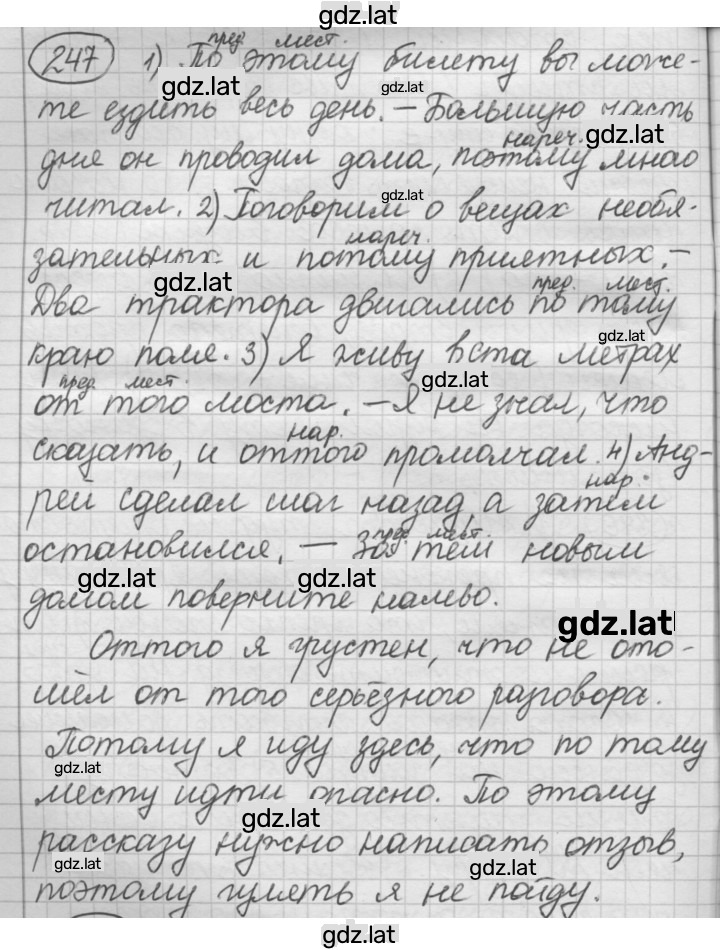 gdz.lat
пред. мест.
247 1) По этому билету вы може-
gdz.lat
те ездить весь день. – Большую часть
gdz.lat
нареч. gdz.lat
дня он проводил дома, поэтому много
gdz.lat
читал. 2) Поговорим о вещах необя-
нареч.
зательных и потому приятных. –
gdz.lat пред. мест.
Два трактора двигались по тому
gdz.lat
краю поля. 3) Я живу в ста метрах
пред. мест. gdz.lat
от того моста. – Я не знал, что
нар.
сказать, и оттого промолчал. 4) Анд-
нар.
рей сделал шаг назад, а затем
пред. мест.
остановился. – За тем новым
gdz.lat gdz.lat
домом поверните налево.
gdz.lat
Оттого я грустен, что не ото-
шёл от того серьёзного разговора.
Потому я иду здесь, что по тому
gdz.lat
месту идти опасно. По этому
gdz.lat
рассказу нужно написать отзыв,
gdz.lat gdz.lat
поэтому гулять я не пойду.
gdz.lat